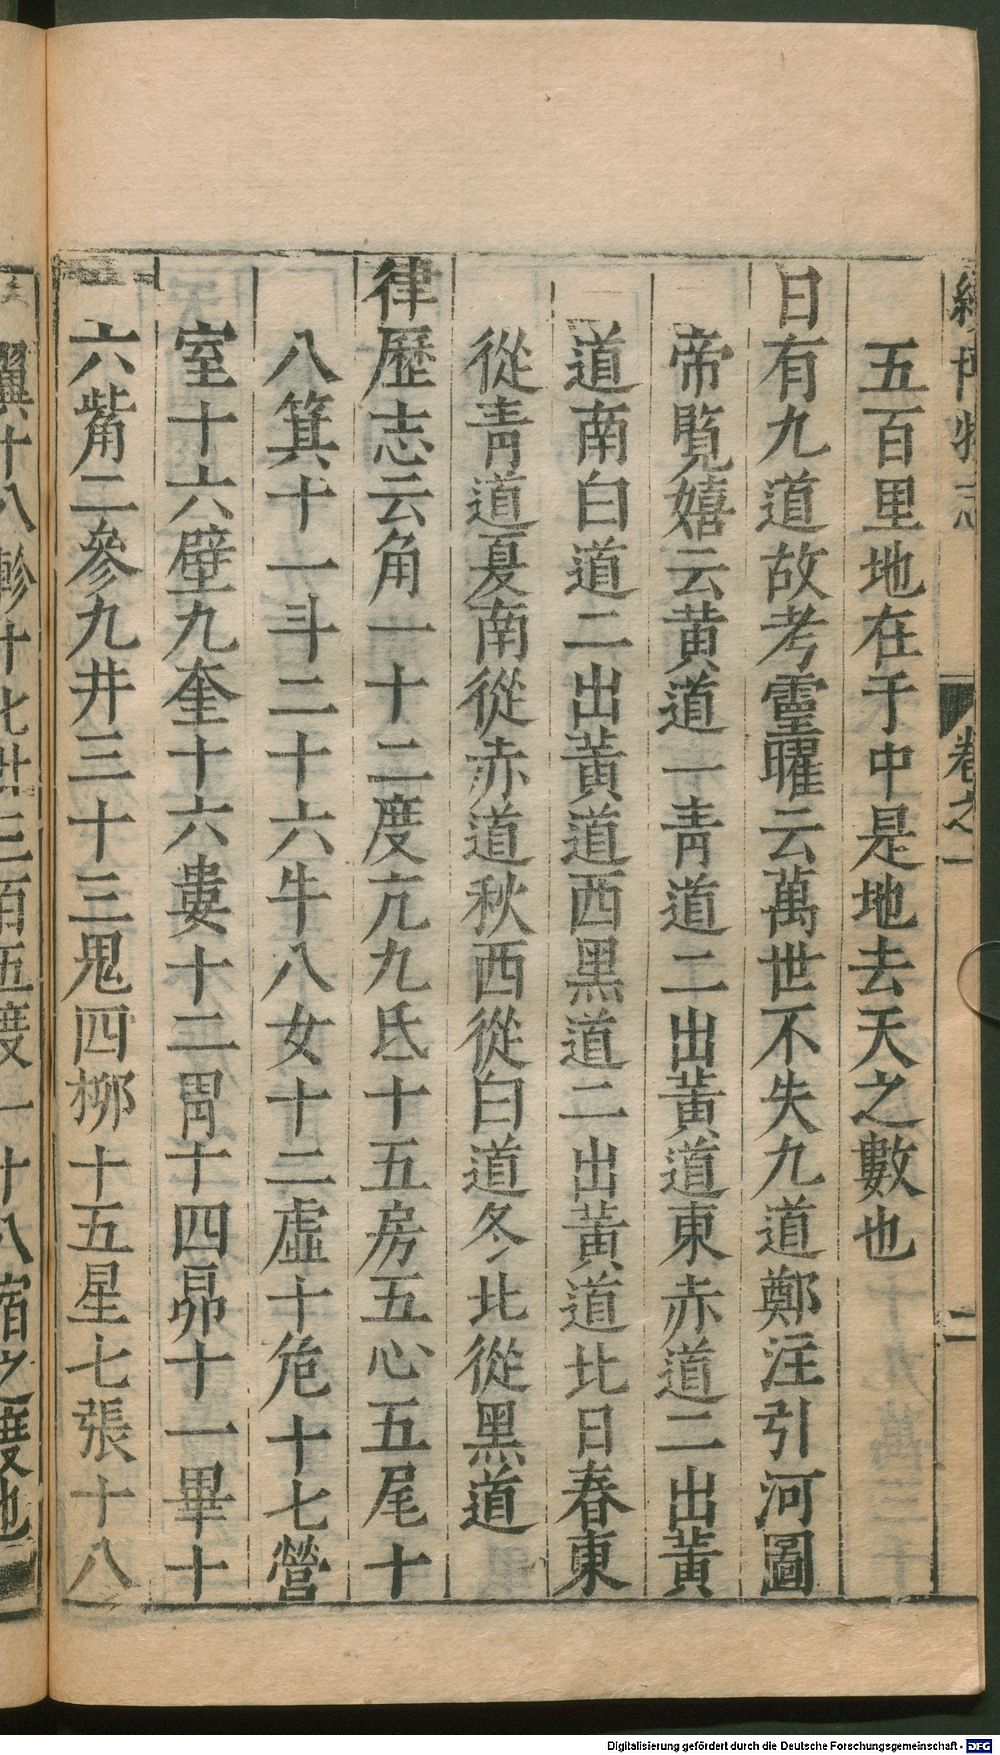 續博物志 卷之一 二
五百里地在于中是地去天之數也
日有九道故考靈曜云萬世不失九道鄭注引河圖
帝覽嬉云黃道一青道二出黃道東赤道二出黃
道南白道二出黃道西黑道二出黃道北日春東
從青道夏南從赤道秋西從白道冬北從黑道
律歷志云角一十二度亢九氐十五房五心五尾十
八箕十一斗二十六牛八女十二虛十危十七營
室十六壁九奎十六婁十二胃十四昴十一畢十
六觜二參九井三十三鬼四柳十五星七張十八
翼十八軫十七 三百五度二十八宿之度也
Digitalisierung gefördert durch die Deutsche Forschungsgemeinschaft - DFG